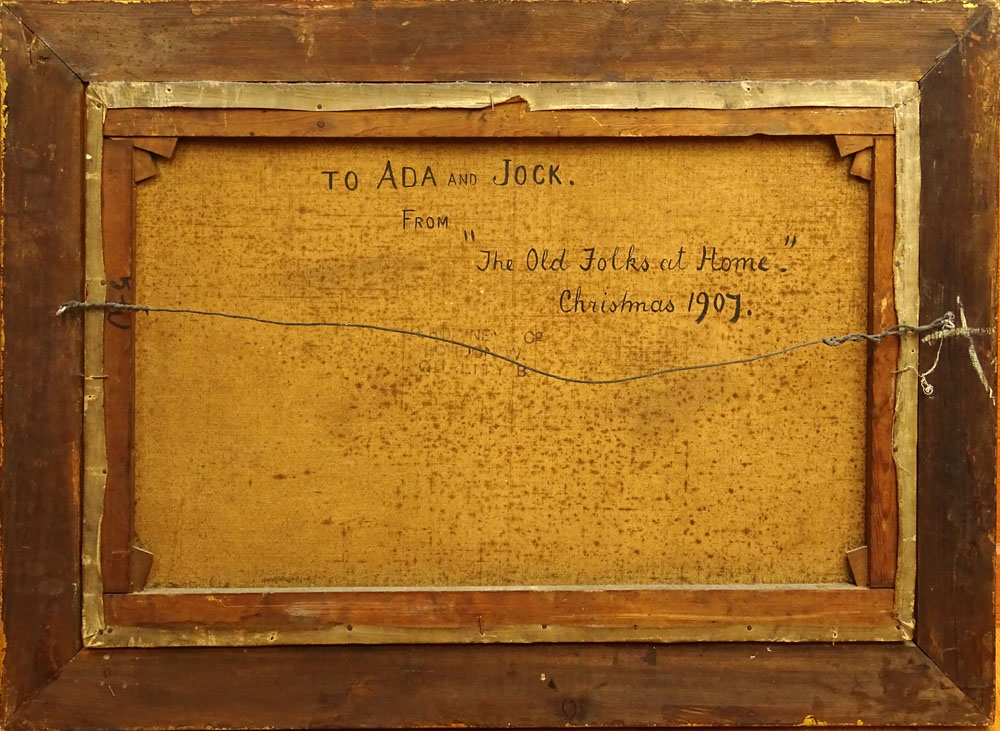 TO ADA AND JOCK.
FROM
"The Old Folks at Home."
Christmas 1907.
Co
QUALITY B